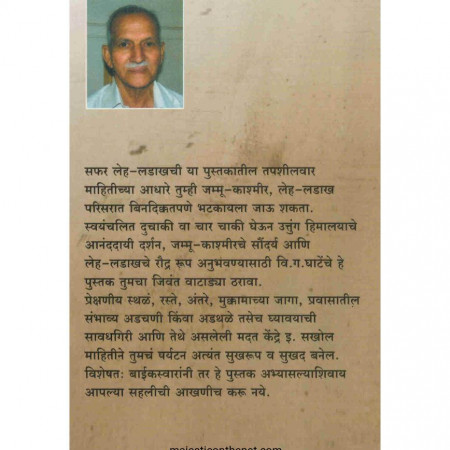 सफर लेह-लडाखची या पुस्तकातील तपशीलवार
माहितीच्या आधारे तुम्ही जम्मू-काश्मीर, लेह-लडाख
परिसरात बिनदिक्कतपणे भटकायला जाऊ शकता.
स्वयंचलित दुचाकी वा चार चाकी घेऊन उत्तुंग हिमालयाचे
आनंददायी दर्शन, जम्मू-काश्मीरचे सौंदर्य आणि
लेह-लडाखचे रौद्र रूप अनुभवण्यासाठी वि.ग.घाटेंचे हे
पुस्तक तुमचा जिवंत वाटाड्या ठरावा.
प्रेक्षणीय स्थळं, रस्ते, अंतरे, मुक्कामाच्या जागा, प्रवासातील
संभाव्य अडचणी किंवा अडथळे तसेच घ्यावयाची
सावधगिरी आणि तेथे असलेली मदत केंद्रे इ. सखोल
माहितीने तुमचं पर्यटन अत्यंत सुखरूप व सुखद बनेल.
विशेषतः बाईकस्वारांनी तर हे पुस्तक अभ्यासल्याशिवाय
आपल्या सहलीची आखणीच करू नये.